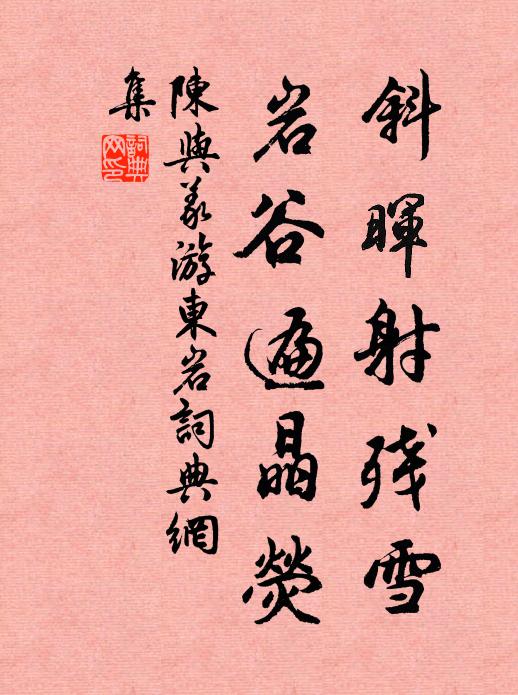 斜暉射残雪
岩谷遍晶熒
陳與義游東岩詞典網
集
詞典
网印